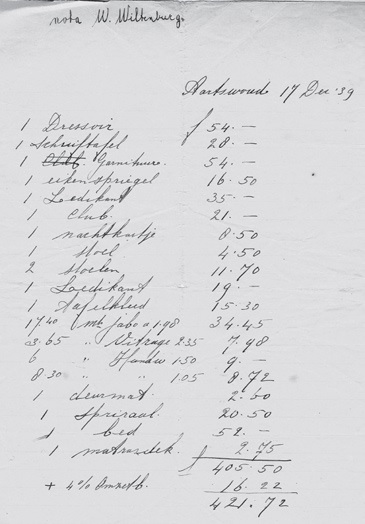 nota W. Wiltenburg.
Aartswoud 17 Dec '39
1 Dressoir f 54.—
1 Schrijftafel 28.—
1 Club Garnituur. 54.—
1 eiken spiegel 16.50
1 Ledikant 35.—
1 Club. 21.—
1 nachtkastje 8.50
1 stoel 4.50
2 stoelen 11.70
1 Ledikant 19.—
1 Tafelkleed 15.30
17.40 mtr. Jabo a 1.98 34.45
3.65 " Vitrage 2.35 7.98
6 " 1.50 9.—
8.30 " " 1.05 8.72
1 deurmat. 2.60
1 spiraal. 20.50
1 bed 52.—
1 matrasdek. 2.75
f 405.50
+ 4% Omzetb. 16.22
421.72